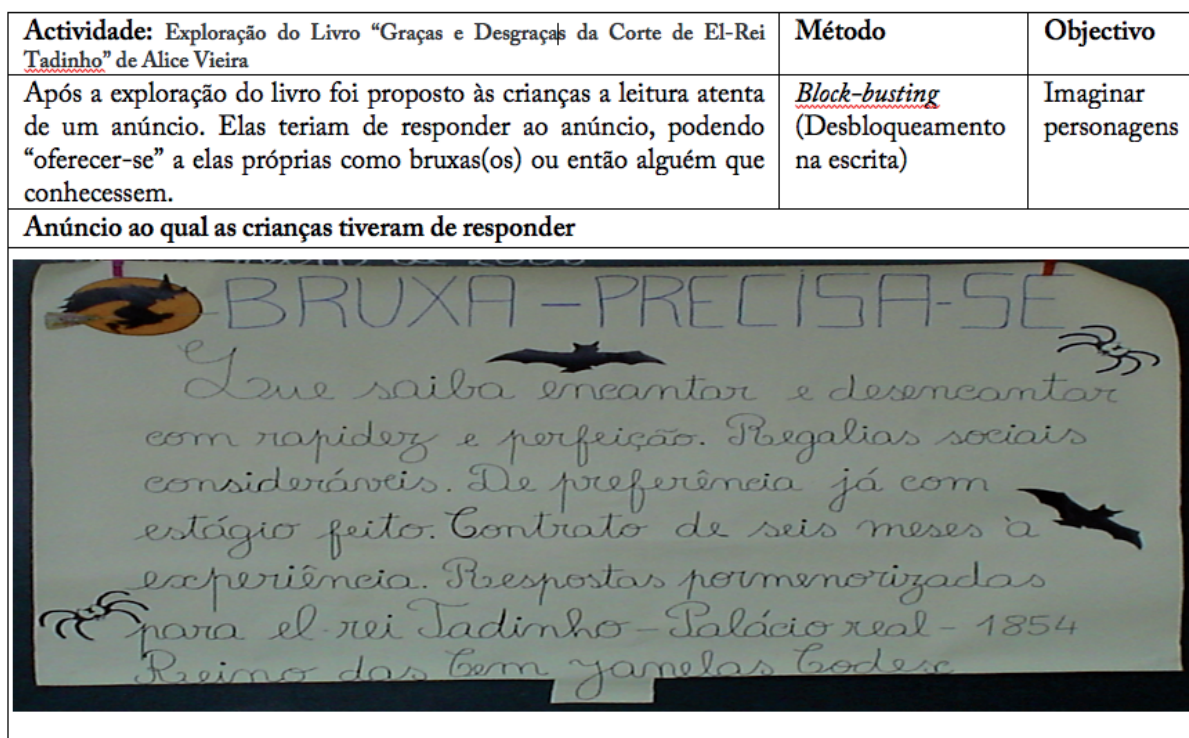 Actividade: Exploração do Livro “Graças e Desgraças da Corte de El-Rei
Tadinho” de Alice Vieira
Método
Objectivo
Após a exploração do livro foi proposto às crianças a leitura atenta
de um anúncio. Elas teriam de responder ao anúncio, podendo
“oferecer-se” a elas próprias como bruxas(os) ou então alguém que
conhecessem.
Block-busting
(Desbloqueamento
na escrita)
Imaginar
personagens
Anúncio ao qual as crianças tiveram de responder
BRUXA - PRECISA-SE
Que saiba encantar e desencantar
com rapidez e perfeição. Regalias sociais
consideráveis. De preferência já com
estágio feito. Contrato de seis meses à
experiência. Respostas pormenorizadas
para el-rei Tadinho - Palácio real - 1854
Reino das Cem Janelas Codex